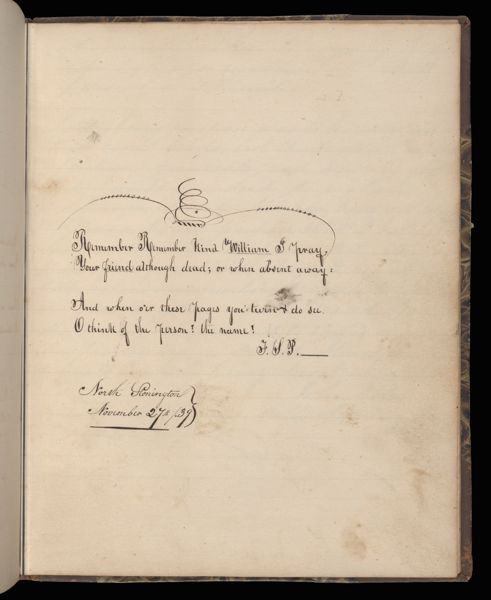 Remember Remember kind William I pray,
Your friend although dead; or when absent away:
And when o'er these pages you turn & do see.
O think of the person! the name!
J. S. P.
North Stonington
November 27th/39